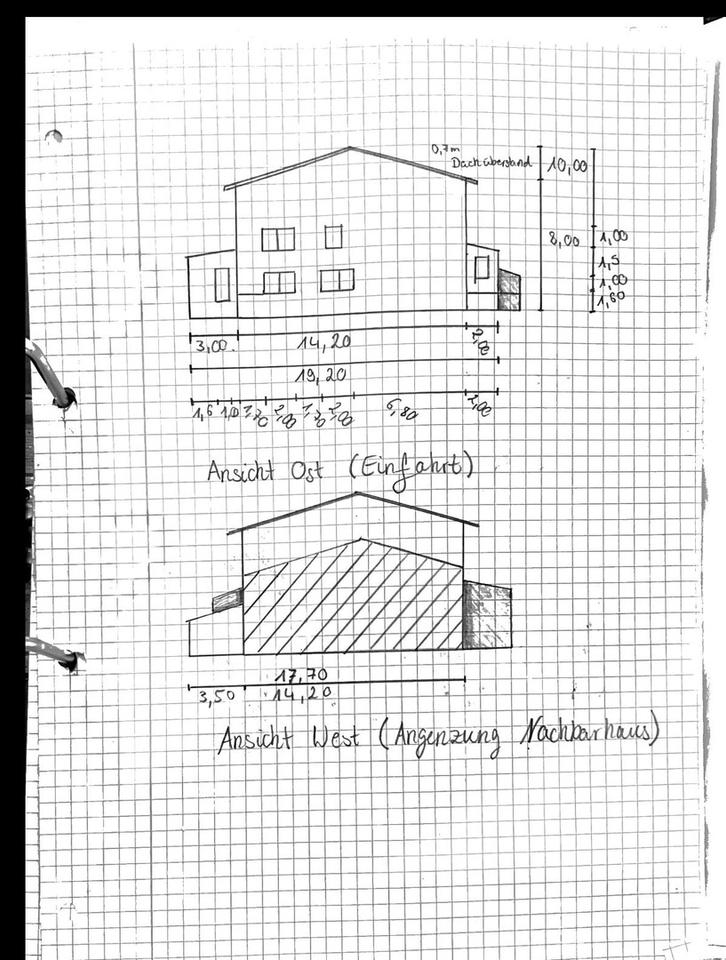 0,7m
Dachüberstand
10,00
8,00
1,00
1,5
1,00
1,60
3,00
14,20
2,00
19,20
1,6
1,0
2,00
2,00
6,80
2,00
Ansicht Ost (Einfahrt)
17,70
3,50
14,20
Ansicht West (Angenzung Nachbarhaus)